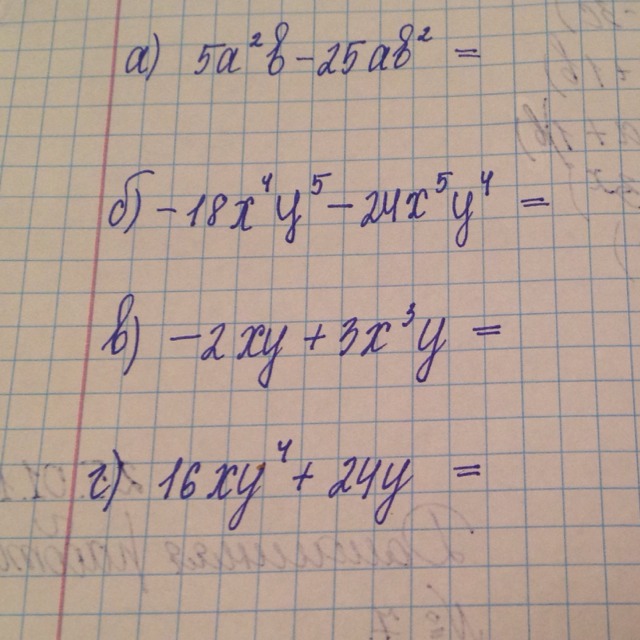 а) 5a²b - 25ab² =
б) -18x⁴y⁵ - 24x⁵y⁴ =
в) -2xy + 3x³y =
г) 16xy⁴ + 24y =